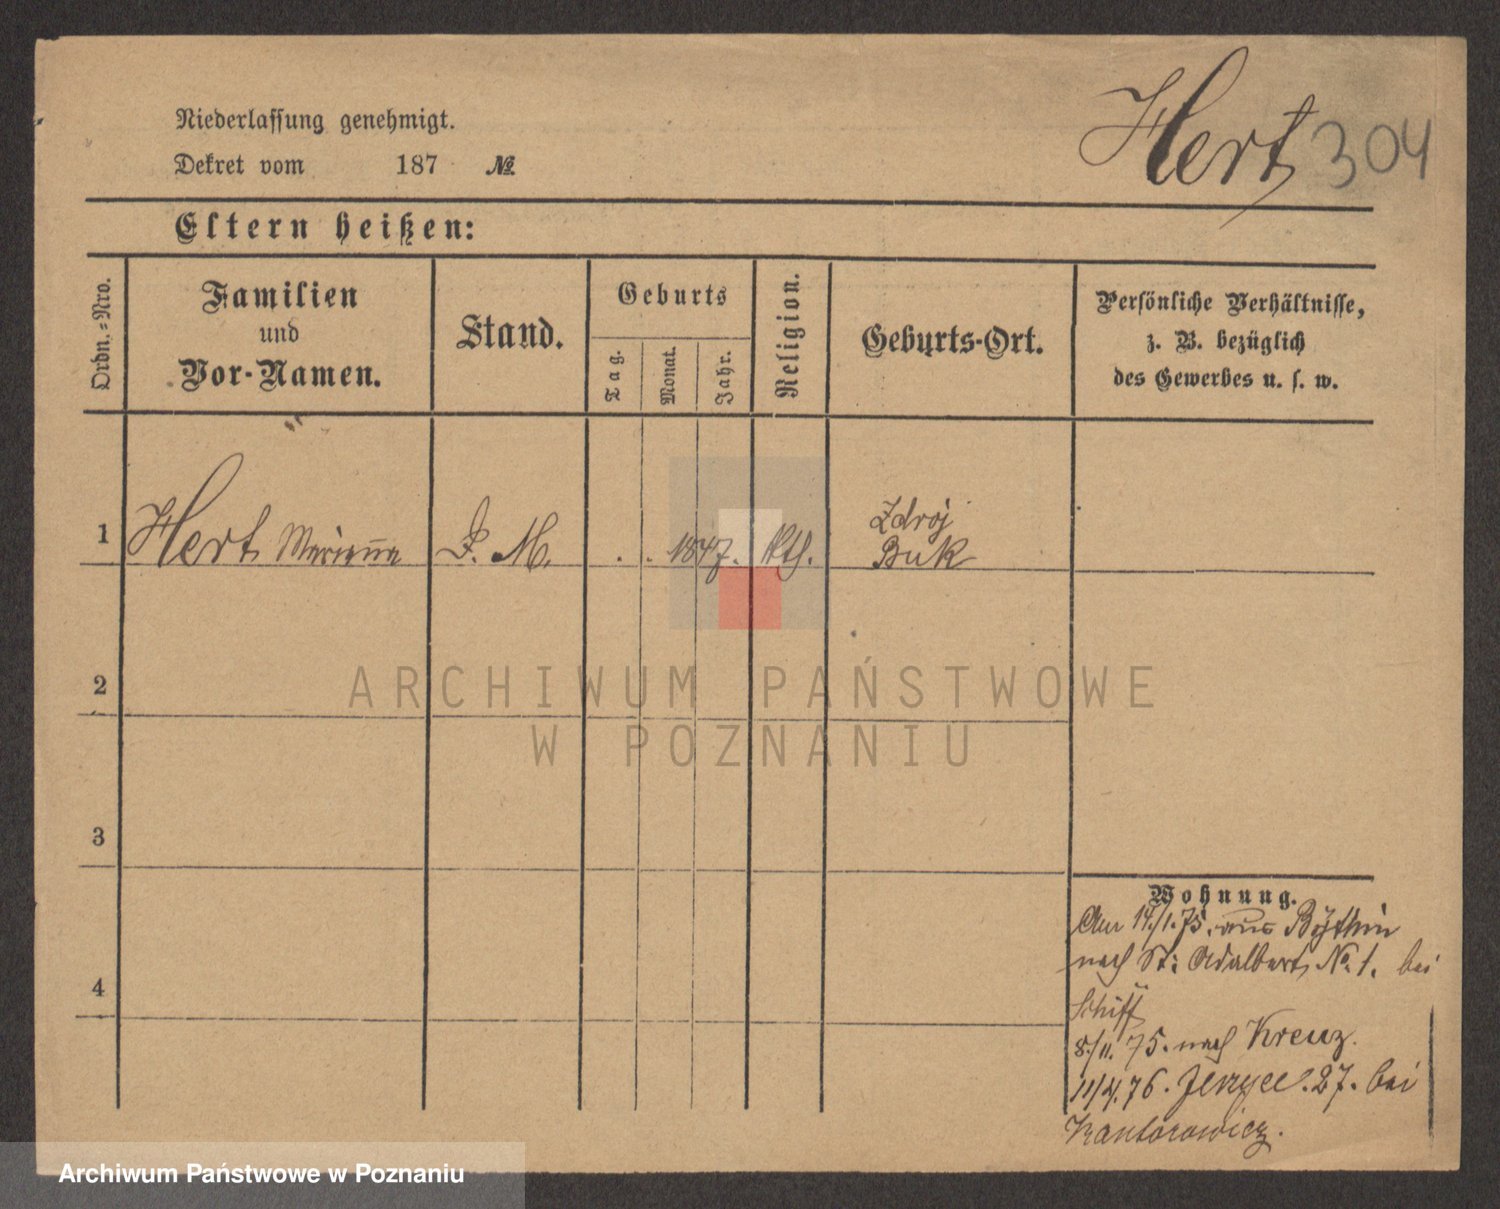 Niederlassung genehmigt.
Dekret vom 187 №
Hert 304
Eltern heißen:
Ordn.=Nro.
Familien
und
Vor-Namen.
Stand.
Geburts
Tag.
Monat.
Jahr.
Religion.
Geburts-Ort.
Persönliche Verhältnisse,
z. B. bezüglich
des Gewerbes u. s. w.
1 Hert Marianna D. M. . . 1847. kth. Zdroj
Buk
2
3
4
Wohnung.
Am 14./1. 75. aus Bythin
nach St: Adalbert № 1. bei
Schiff
8./11. 75. nach Kreuz.
11/4. 76. 27. bei
Kantorowicz.
ARCHIWUM PAŃSTWOWE
W POZNANIU
Archiwum Państwowe w Poznaniu